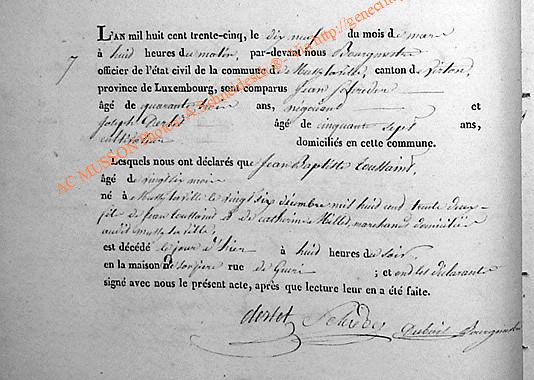 L'AN mil huit cent trente-cinq, le dix neuf du mois de mars
7
à huit heures du matin, par-devant nous Bourgmestre
officier de l'état civil de la commune de Mussy la ville, canton de Virton,
province de Luxembourg, sont comparus Jean
âgé de quarante ans, négociant et
Joseph âgé de cinquante sept ans,
cultivateur domiciliés en cette commune.
Lesquels nous ont déclarés que Jean Baptiste Toussaint,
âgé de vingt six mois
né à Mussy la ville le vingt six décembre mil huit cent trente deux
fils de Jean Toussaint & de catherine marchand domicilié
audit Mussy la ville,
est décédé le jour d'hier à huit heures du soir,
en la maison de son père rue de ; et ont les déclarants
signé avec nous le présent acte, après que lecture leur en a été faite.
Bourgmestre
AC MUSSON Photo A. Schmedesde ®- http://genecin